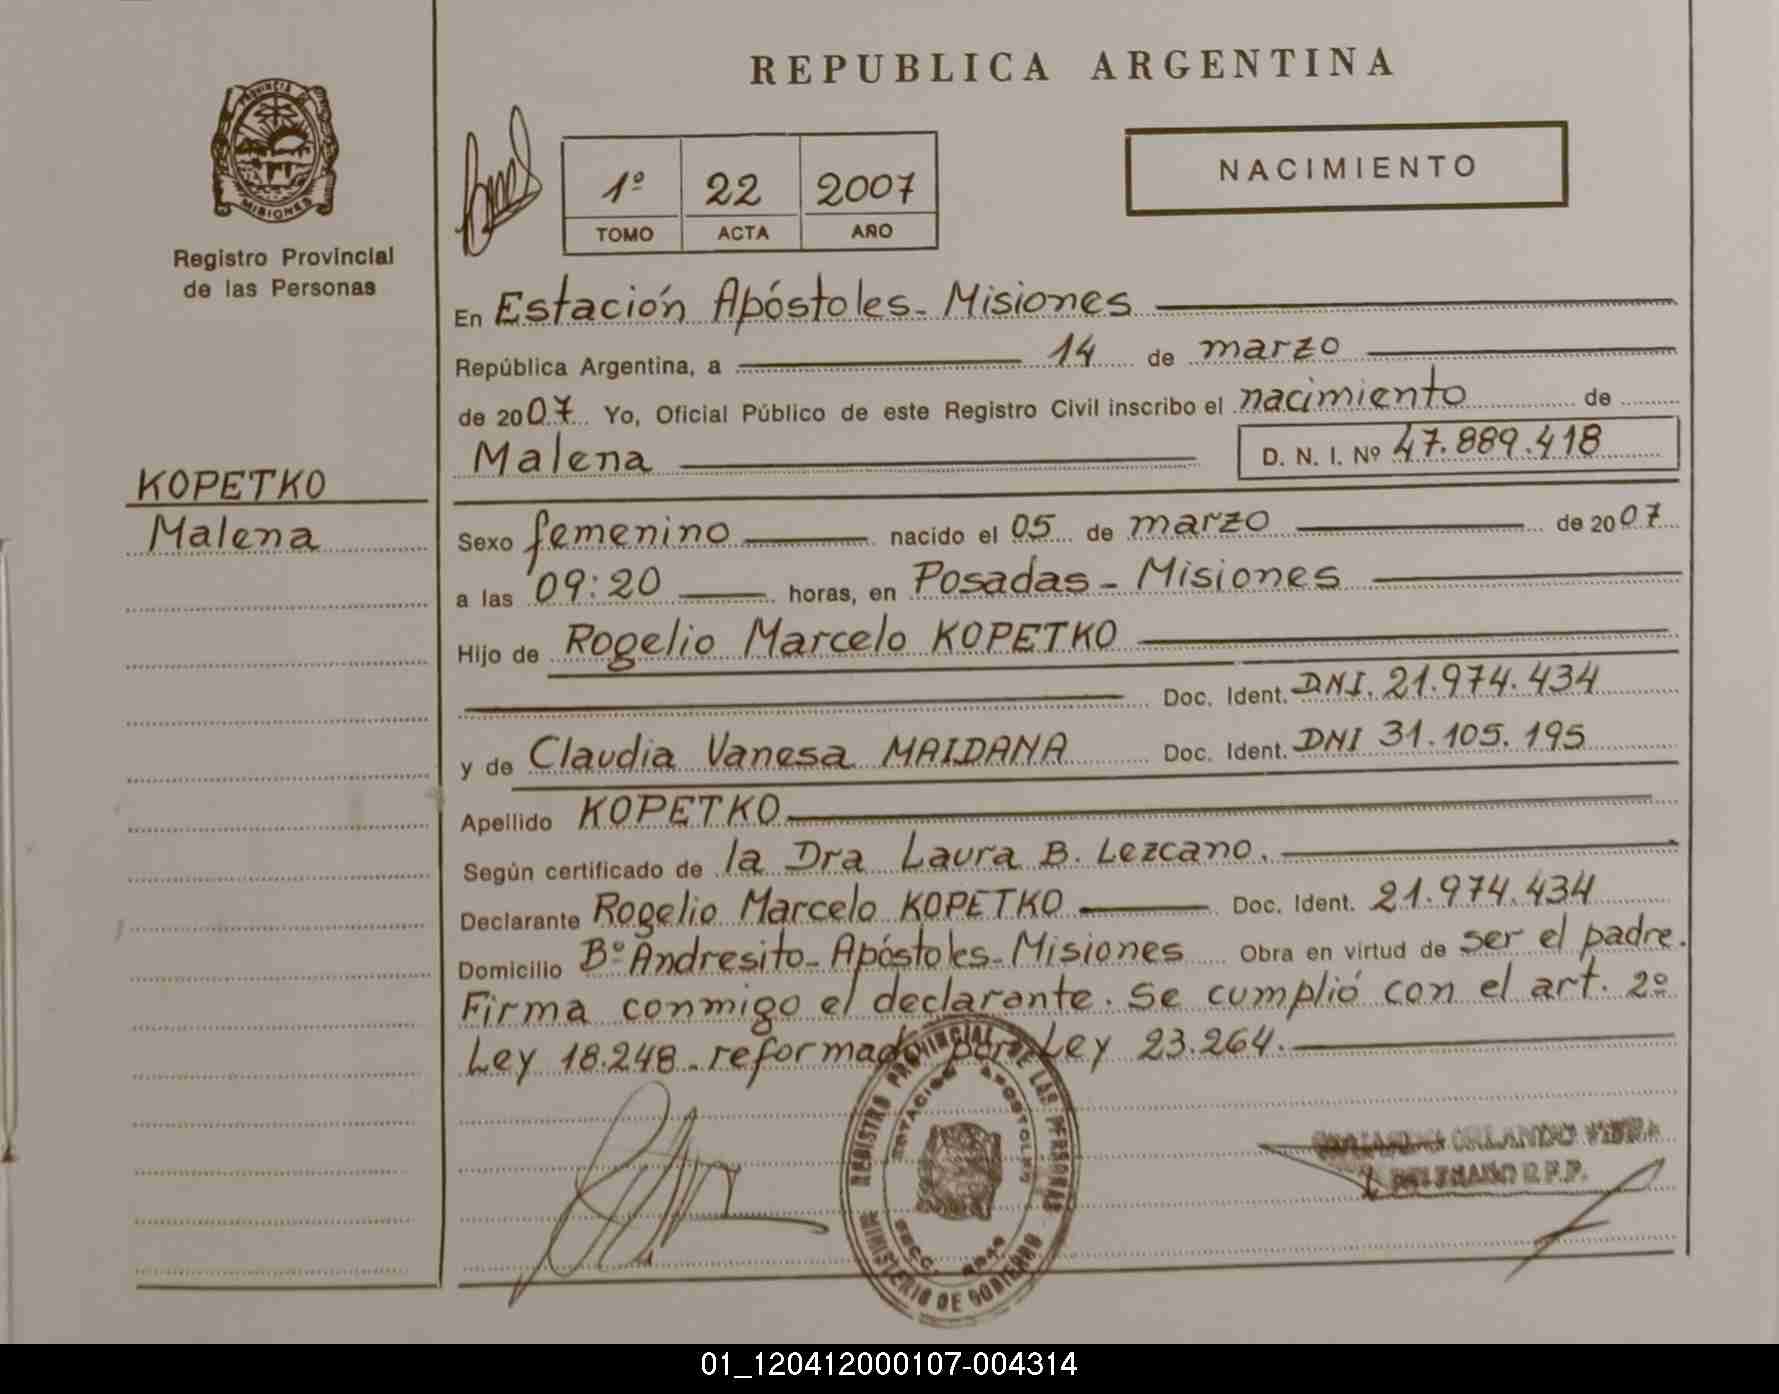 REPUBLICA ARGENTINA
PROVINCIA DE
MISIONES
Registro Provincial
de las Personas
1º 22 2007
TOMO ACTA AÑO
NACIMIENTO
En Estación Apóstoles - Misiones
República Argentina, a 14 de marzo
de 2007 Yo, Oficial Público de este Registro Civil inscribo el nacimiento de
Malena D. N. I. Nº 47.889.418
KOPETKO
Malena
Sexo femenino nacido el 05 de marzo de 2007
a las 09:20 horas, en Posadas - Misiones
Hijo de Rogelio Marcelo KOPETKO
Doc. Ident. DNI. 21.974.434
y de Claudia Vanesa MAIDANA Doc. Ident. DNI 31.105.195
Apellido KOPETKO
Según certificado de la Dra Laura B. Lezcano.
Declarante Rogelio Marcelo KOPETKO Doc. Ident. 21.974.434
Domicilio Bº Andresito - Apóstoles - Misiones Obra en virtud de ser el padre.
Firma conmigo el declarante. Se cumplió con el art. 2º
Ley 18.248 - reformado por Ley 23.264.
REGISTRO PROVINCIAL DE LAS PERSONAS
ESTACION APOSTOLES
MINISTERIO DE GOBIERNO
ORLANDO
01_120412000107-004314